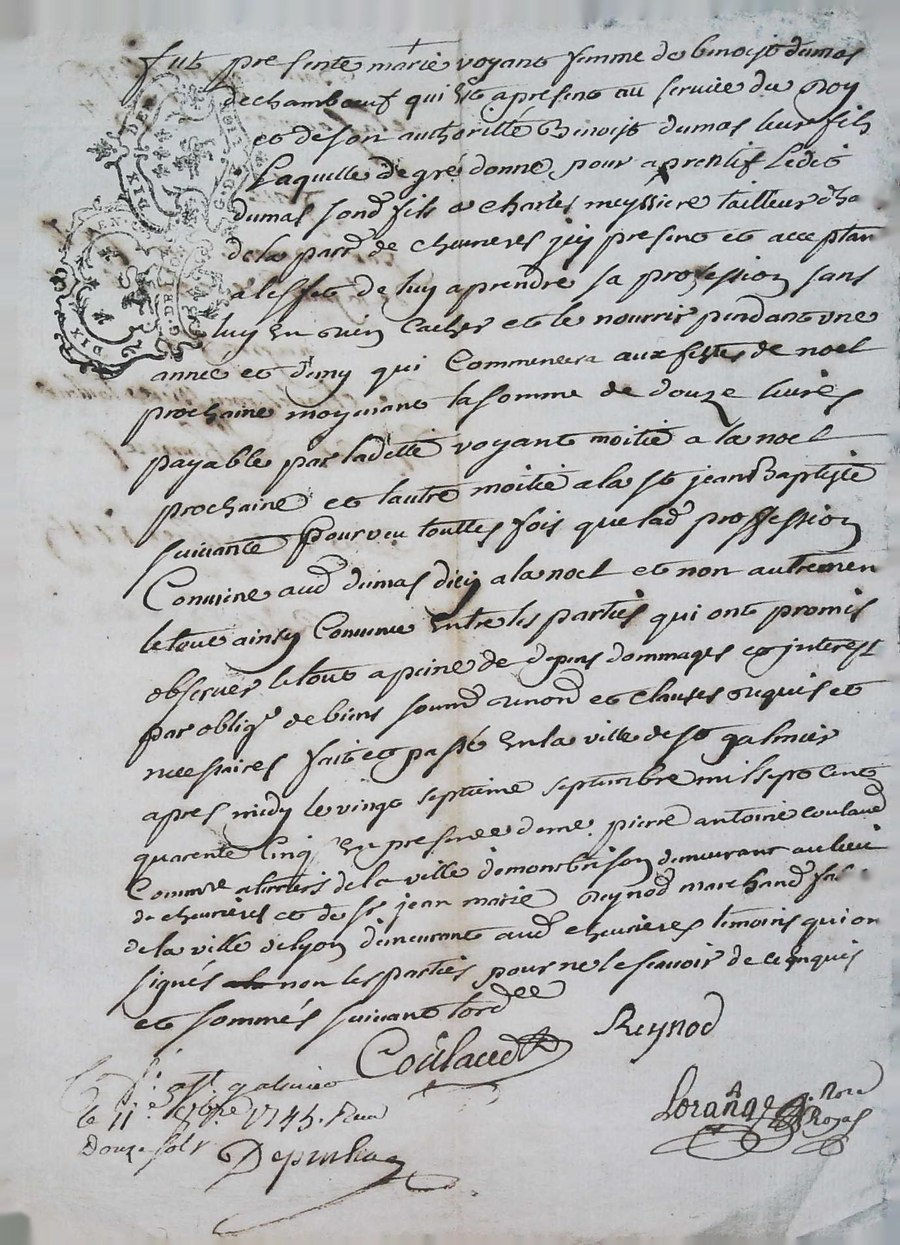 fut presente marie voyant femme de benoist dumas
de chambœuf qui est apresent au service du Roy
et de son authorillé Benoist dumas leur fils
Laquelle de gré donne pour aprentif Ledit
dumas sond fils a Charles meyssiere tailleur dha
de la parr de chevrieres jcy present et acceptan
a leffet de luy aprendre sa profession sans
luy en rien cacher et le nourrir pendant une
année et demy qui Commencera aux festes de noel
prochaine moyenant la somme de douze livres
payable par ladette voyant moitié a la noel
prochaine et lautre moitié a la st jean Baptiste
suivante Pourveu touttes fois que lad profession
Conviene aud dumas dicy a la noel et non autremen
le tout ainsy Convenu Entre les parties qui ont promis
observer le tout a peine de depens dommages et interest
par oblig de biens soumd renond et clauses requis et
necessaires fait et passé En la ville de st galmier
apres midy le vingt septieme septembre mil sept cent
quarente Cinq En presence de me pierre antoine coulaud
Commre de la ville de montbrison demeurant au lieu
de chevrieres et de sr jean marie Reynod marchand
de la ville de lyon demeurant aud chevrieres temoins qui on
signés non les parties pour ne le scavoir de ce enquis
et sommés suivant lord
Coulaud Reynod
a st galmier
le 11e 8bre 1745. Receu
Douze sols
Lorange Nore
Royal